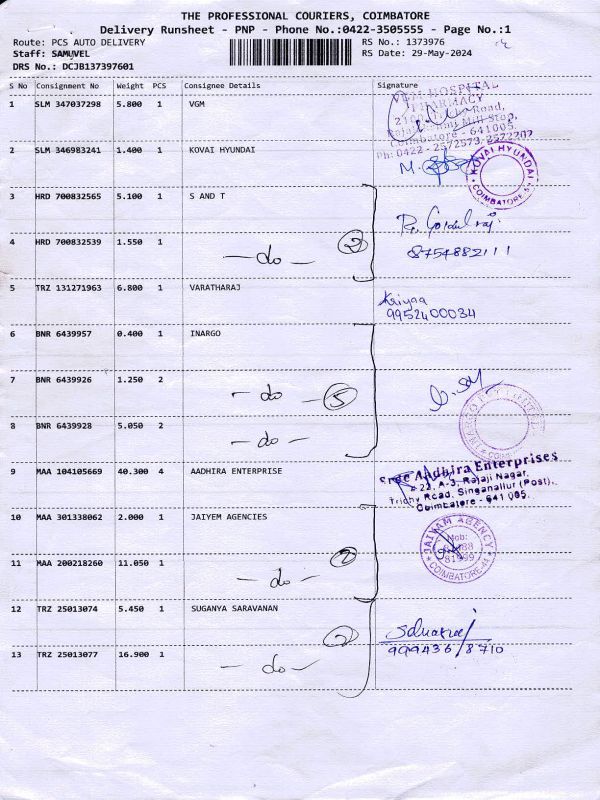 THE PROFESSIONAL COURIERS, COIMBATORE
Delivery Runsheet - PNP - Phone No.:0422-3505555 - Page No.:1
Route: PCS AUTO DELIVERY RS No.: 1373976
Staff: SAMUVEL RS Date: 29-May-2024
DRS No.: DCJB137397601
S No Consignment No Weight PCS Consignee Details Signature
1 SLM 347037298 5.800 1 VGM
VGM HOSPITAL
PHARMACY
Road,
Stop,
Coimbatore - 641005.
Ph: 0422 - 2572573, 2572387
2 SLM 346983241 1.400 1 KOVAI HYUNDAI
KOVAI HYUNDAI
COIMBATORE
3 HRD 700832565 5.100 1 S AND T
4 HRD 700832539 1.550 1 - do - 2 8754882111
5 TRZ 131271963 6.800 1 VARATHARAJ
9952400034
6 BNR 6439957 0.400 1 INARGO
7 BNR 6439926 1.250 2 - do - 5
8 BNR 6439928 5.050 2 - do -
9 MAA 104105669 40.300 4 AADHIRA ENTERPRISE
Sree Aadhira Enterprises
# 22, A-3, Rajaji Nagar,
Trichy Road, Singanallur (Post),
Coimbatore - 641 005.
10 MAA 301338062 2.000 1 JAIYEM AGENCIES
JAIYAM AGENCY
Mob:
COIMBATORE-44
11 MAA 200218260 11.050 1 - do - 2
12 TRZ 25013074 5.450 1 SUGANYA SARAVANAN
2
999436/8710
13 TRZ 25013077 16.900 1 - do -